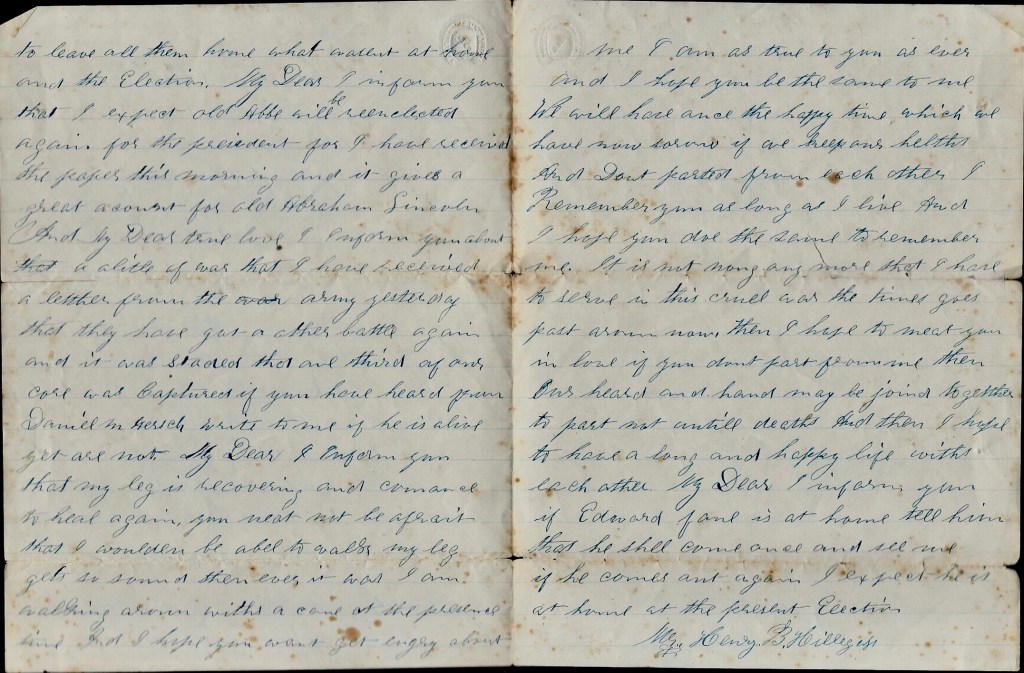 to leave all them home what wasent at home
and the Election, My Dear I inform you
that I expect old Abbe will be reenelected
again for the preisdent for I have received
the paper this morning and it gives a
great acount for old Abraham Lincoln
And My Dear true love I Enform you about
that a alitle of war that I have received
a letther from the war army yesterday
that they have got a other battle again
and it was staded that one third of our
core was Captured if you have heard from
Daniell M Gersch write to me if he is alive
yet are not. My Dear I Enform you
that my leg is recovering and comance
to heal again, you neat not be afrait
that I woulden be abel to walk my leg
gets so sound then ever it was I am
walking aroun withs a cane at the presence
time And I hope you want get engry about
me I am as true to you as ever
and I hope you be the same to me
We will have ance the happy time which we
have now sorow if we keep our helths
And Dont parted from each other I
Remember you as long as I live And
I hope you doe the same to remember
me. It is not nong any more that I have
to serve in this cruel war the times goes
fast aroun now, then I hope to meat you
in love if you dont part from me then
Our heard and hand may be joind togetther
to part not untill deaths And then I hope
to have a long and happy life withs
each other My Dear I inform you
if Edward fone is at home tell him
that he shll come once and see me
if he comes out again I expect he is
at home at the present Election
Henry. B. Hillegiss